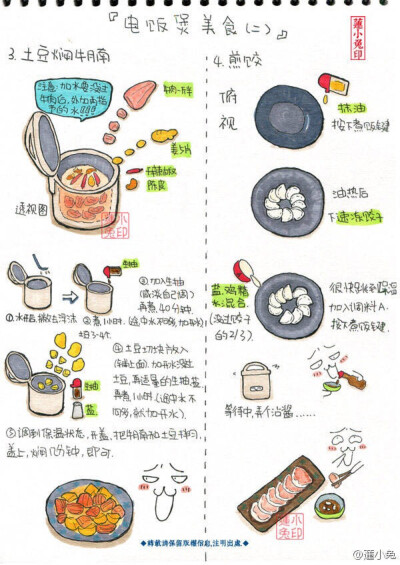 『电饭煲美食(二)』
蓮小兔印
3.土豆焖牛腩
注意:加水要没过
牛肉后,
的水!!!!
姜5片
干辣椒
陈皮
透视图
蓮小兔印
生抽
①水开后,撇去浮沫
②煮1小时.
③加入生抽
(咸淡自己调)
再煮40分钟.
④土豆切块放入
(铺上面).加开水没过
土豆,再适量的生抽,盐
再煮1小时(途中水不
同够,然加开水).
生抽
盐
⑤调到保温状态,开盖,把牛腩和土豆拌匀,
盖上,焖几分钟,即可.
4.煎饺
俯视
抹油
按下煮饭键
油热后
下速冻饺子
盐,鸡精
水混合
(没过饺子
的2/3)
很快到保温
加入调料A.
按下煮饭键.
等待中,弄个沾酱……
蓮小兔印
◆轉載請保留版權信息,注明出處◆
@蓮小兔